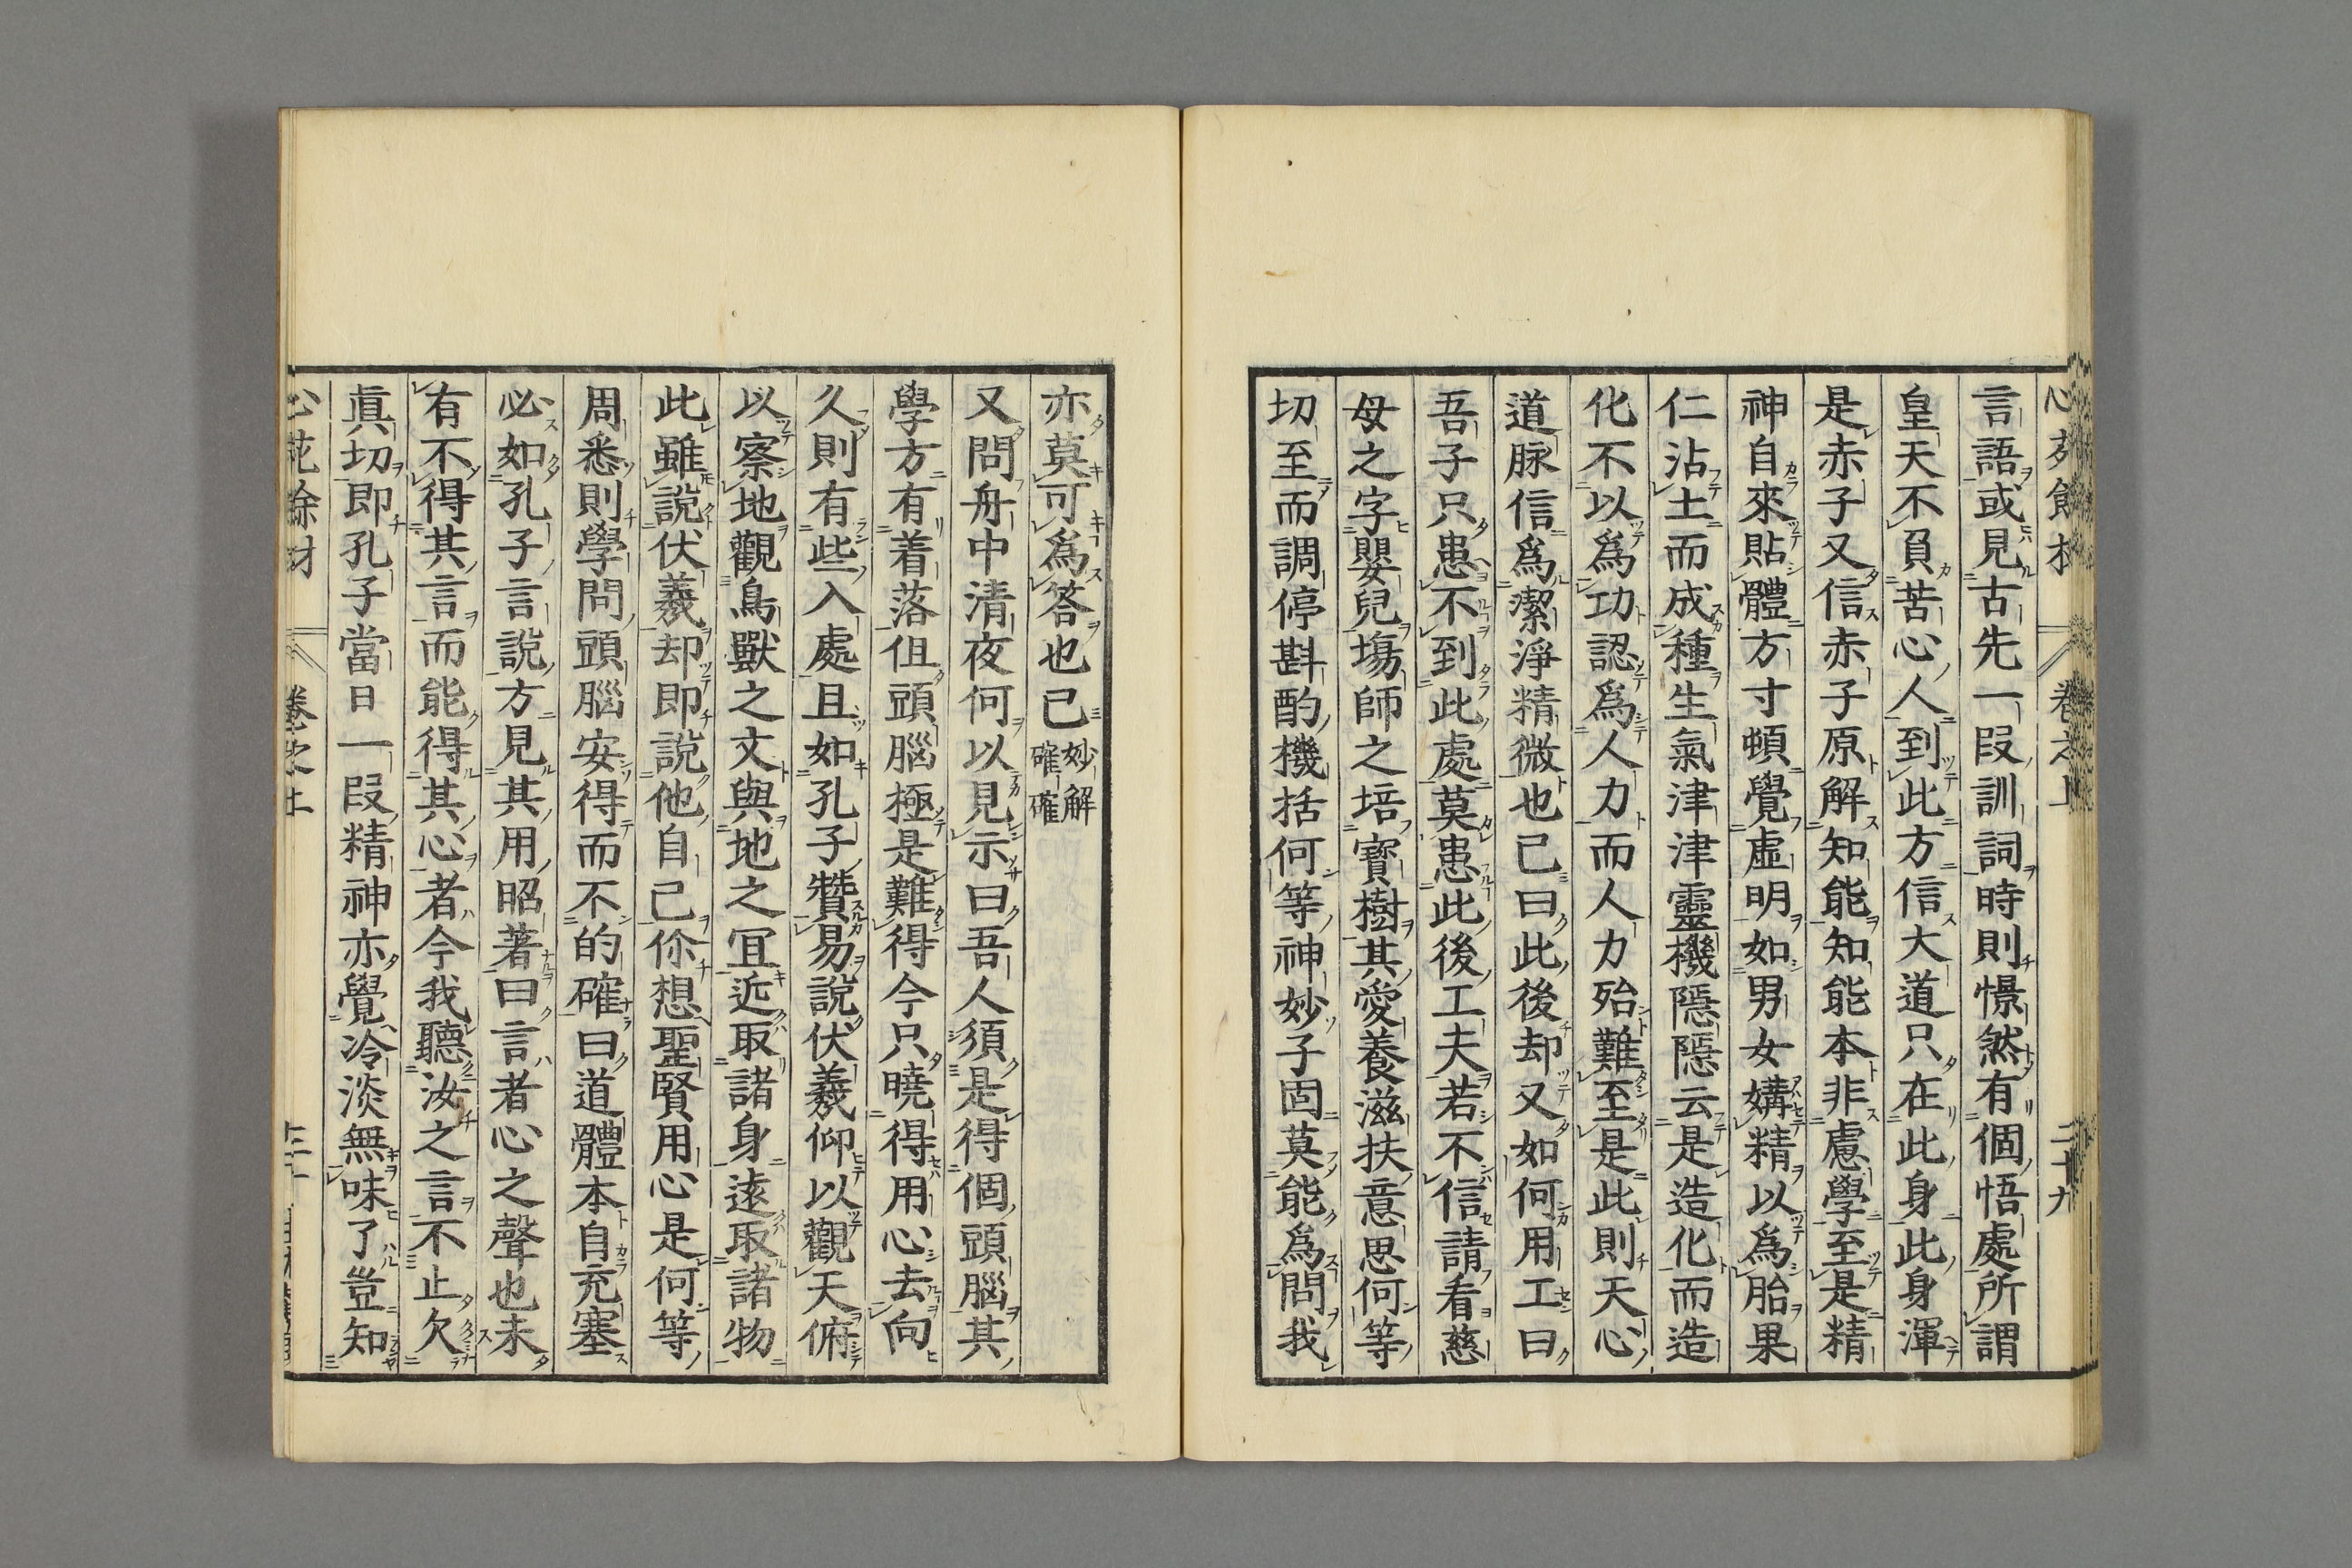 言語或見古先一段訓詞時則憬然有個悟處所謂
皇天不負苦心人到此方信大道只在此身此身渾
是赤子又信赤子原解知能知能本非慮學至是精
神自來貼體方寸頓覺虛明如男女媾精以爲胎果
仁沾土而成種生氣津津靈機隱隱云是造化而造
化不以爲功認爲人力而人力殆難至是此則天心
道脉信爲潔淨精微也已曰此後却又如何用工曰
吾子只患不到此處莫患此後工夫若不信請看慈
母之字嬰兒塲師之培寶樹其愛養滋扶意思何等
切至而調停斟酌機括何等神妙子固莫能爲問我
亦莫可爲答也已 妙解確確
又問舟中清夜何以見示曰吾人須是得個頭腦其
學方有着落但頭腦極是難得今只曉得用心去向
久則有些入處且如孔子贊易說伏羲仰以觀天俯
以察地觀鳥獸之文與地之冝近取諸身遠取諸物
此雖說伏羲却即說他自己你想聖賢用心是何等
周悉則學問頭腦安得而不的確曰道體本自充塞
必如孔子言說方見其用昭著曰言者心之聲也未
有不得其言而能得其心者今我聽汝之言不止欠
眞切即孔子當日一段精神亦覺冷淡無味了豈知
卷之上